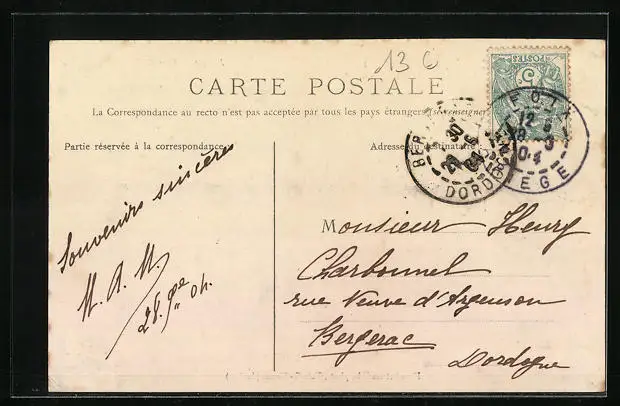 13 C
CARTE POSTALE
La Correspondance au recto n'est pas acceptée par tous les pays étrangers (se renseigner
Partie réservée à la correspondance
Adresse du destinataire
5
POSTES
FOIX
12
04
BERGERAC
30
29
04
DORDOGNE
Souvenirs sincères
M. A. M.
28. 04.
Monsieur Henry
Charbonnel
rue Neuve d'Argenson
Bergerac
Dordogne